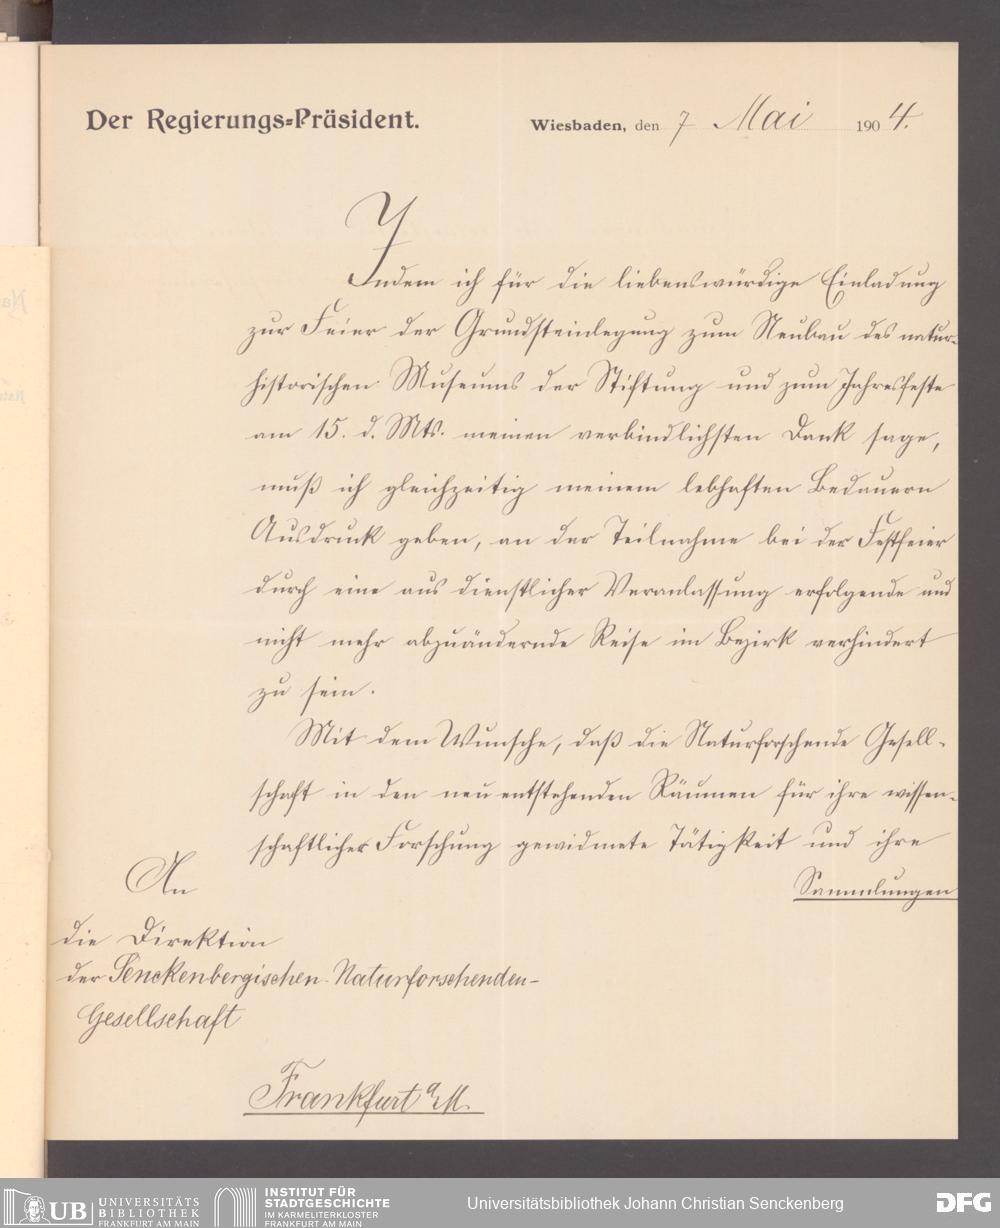 Der Regierungs=Präsident.
Wiesbaden, den 7 Mai 1904.
Indem ich für die liebenswürdige Einladung
zur Feier der Grundsteinlegung zum Neubau des natur-
historischen Museums der Stiftung und zum Jahresfeste
am 15. d. Mts. meinen verbindlichsten Dank sage,
muß ich gleichzeitig meinem lebhaften Bedauern
Ausdruck geben, an der Teilnahme bei der Festfeier
durch eine aus dienstlicher Veranlassung erfolgende und
nicht mehr abzuändernde Reise im Bezirk verhindert
zu sein.
Mit dem Wunsche, daß die Naturforschende Gesell-
schaft in den neu entstehenden Räumen für ihre wissen-
schaftlicher Forschung gewidmete Tätigkeit und ihre
Sammlungen
An
die Direktion
der Senckenbergischen Naturforschenden-
Gesellschaft
Frankfurt a/M.
UB UNIVERSITÄTS
BIBLIOTHEK
FRANKFURT AM MAIN
INSTITUT FÜR
STADTGESCHICHTE
IM KARMELITERKLOSTER
FRANKFURT AM MAIN
Universitätsbibliothek Johann Christian Senckenberg
DFG